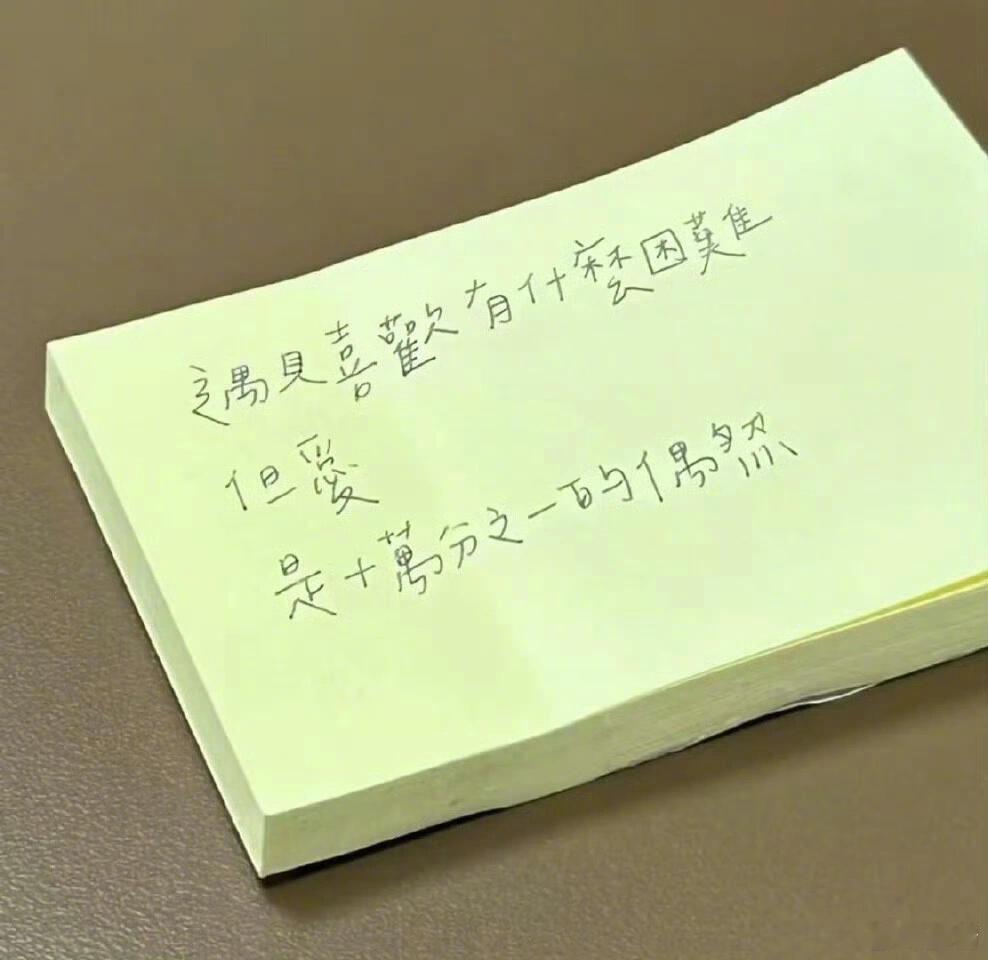 遇見喜歡有什麼困難
但愛
是十萬分之一的偶然